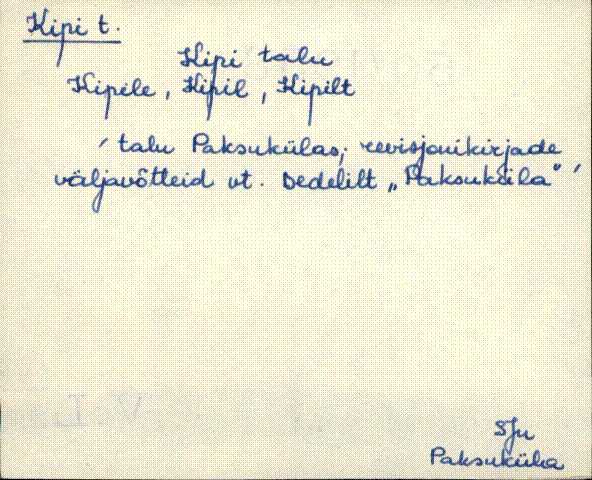 Kipi t.
Kipi talu
Kipile, Kipil, Kipilt
´talu Paksukülas; revisjonikirjade
väljavõtteid vt. sedelilt „Paksuküla"´
SJn
Paksuküla